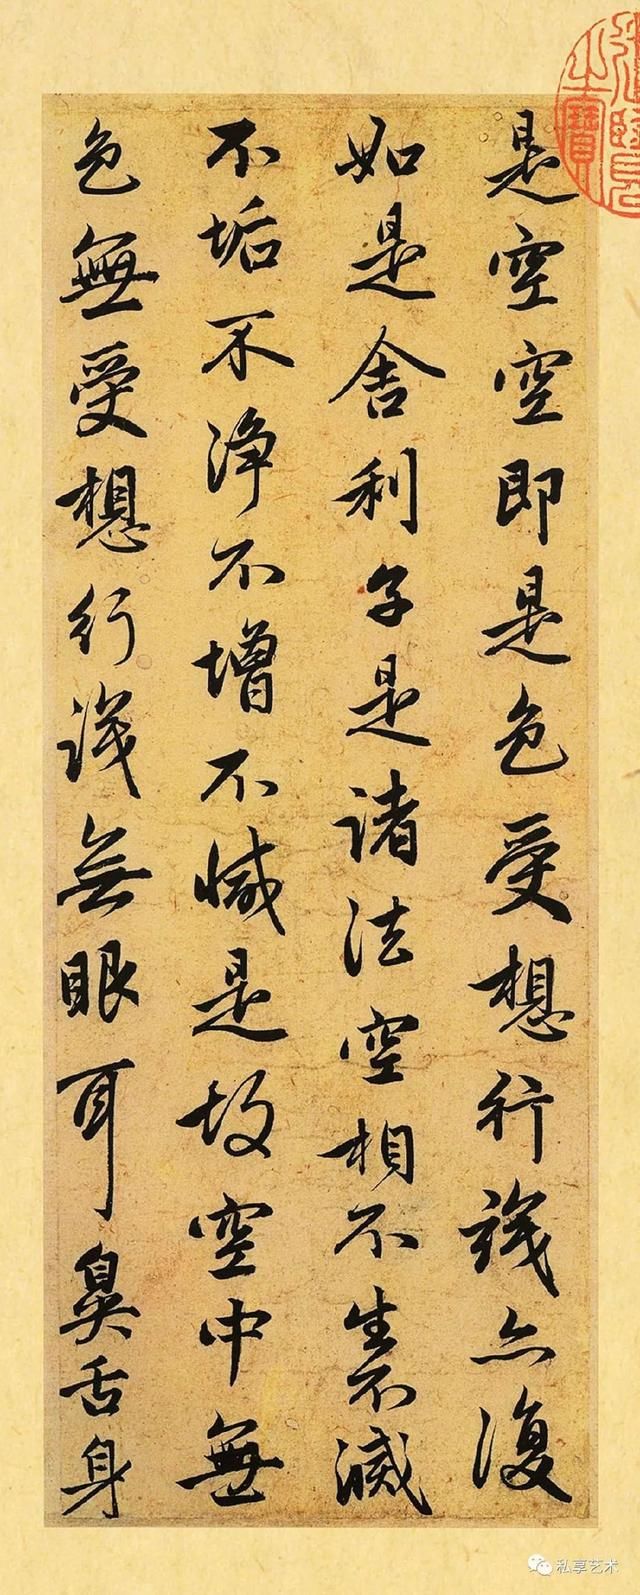 是空空即是色受想行識亦復
如是舍利子是諸法空相不生不滅
不垢不淨不增不減是故空中無
色無受想行識無眼耳鼻舌身
之寶
私享艺术